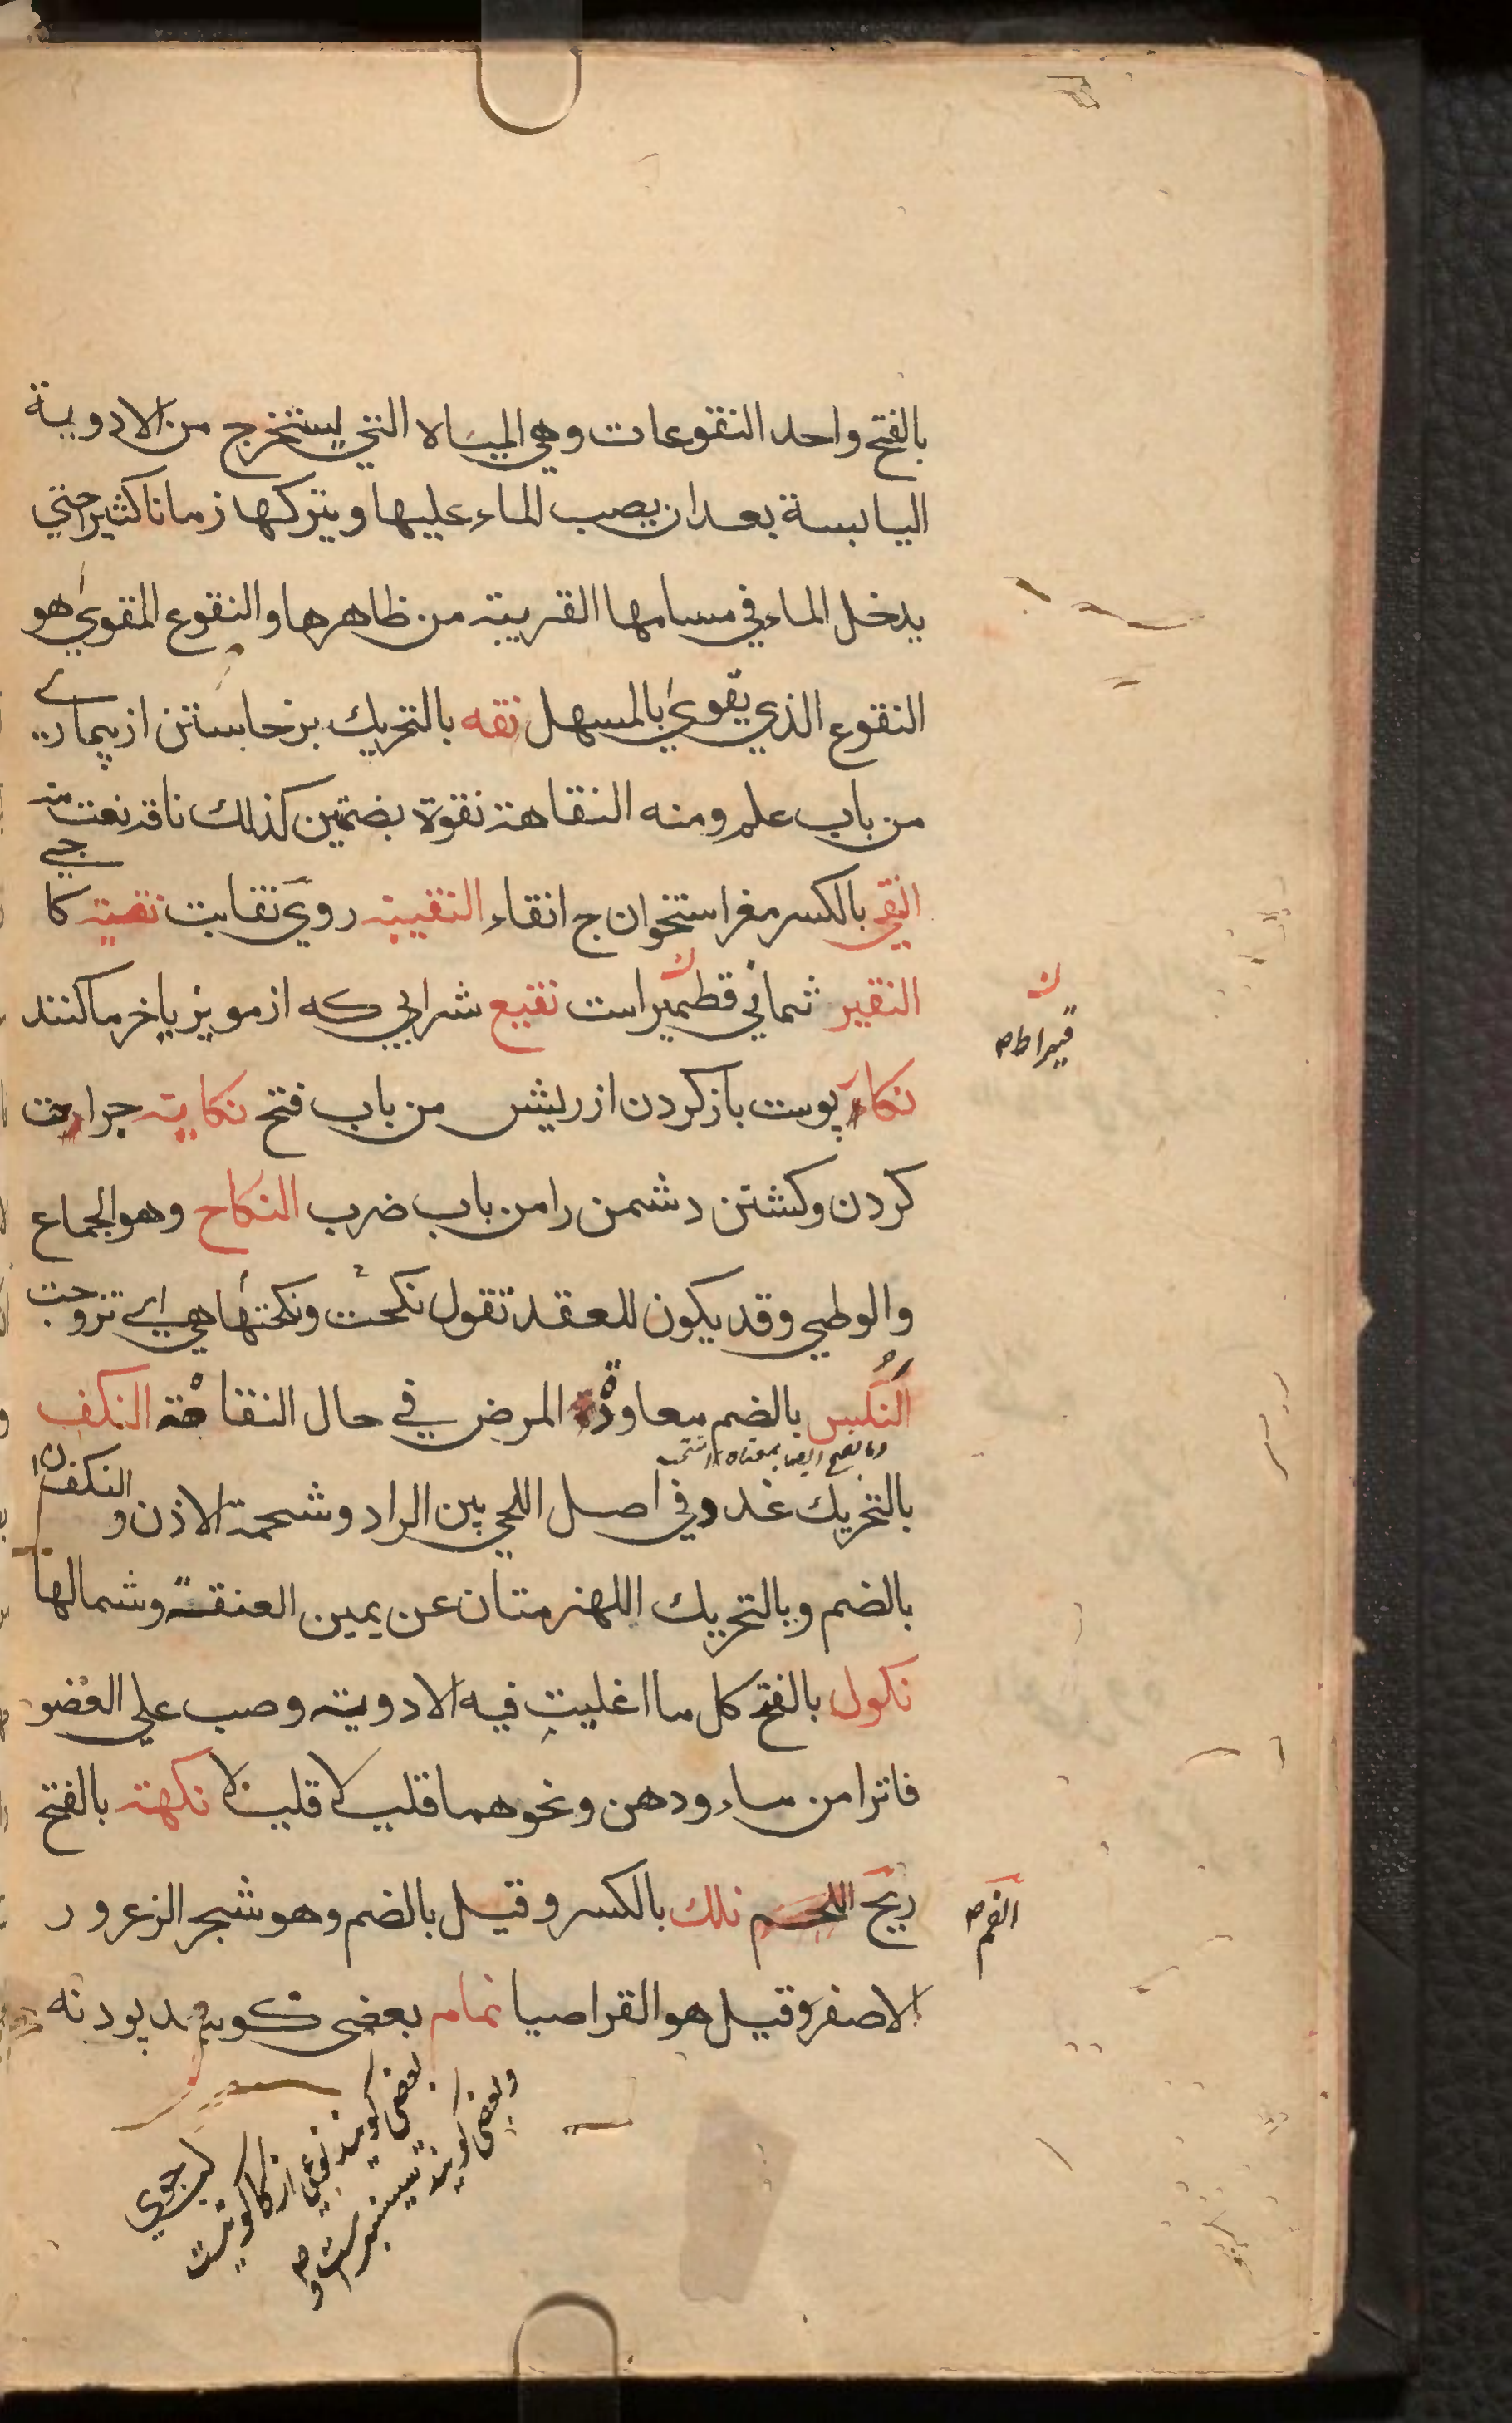 بالفتح واحد النقوعات وهي المياه التي يستخرج من الادوية
اليابسة بعد ان يصب الماء عليها ويتركها زمانا كثيرا حتي
يدخل الماء في مسامها القريبة من ظاهرها والنقوع المقوي هو
النقوع الذي يقوي بالمسهل نقه بالتحريك برخاستن از بيماري
من باب علم ومنه النقاهة نقوة بضمتين كذلك ناقه نعت منه
النقي بالكسر مغز استخوان ج انقاء النقيبة روي نقابت نقيته كا
النقير ثماني قطمير است نقيع شرابي كه از مويز يا خرما كنند
قيراط صح
نكاء پوست باز كردن از ريش من باب فتح نكاية جراحت
كردن وكشتن دشمن را من باب ضرب النكاح وهو الجماع
والوطي وقد يكون للعقد تقول نكحت ونكحتها هي اي تزوجت
النكس بالضم معاودة المرض في حال النقاهة النكف
بالتحريك غدد في اصل اللحي بين الراد وشحمة الاذن والنكفتان
بالضم وبالتحريك اللهزمتان عن يمين العنقة وشمالها
نكول بالفتح كل ما اغليت فيه الادوية وصب علي العضو
فاترا من ماء ودهن ونحوهما قليلا قليلا نكهة بالفتح
ريح اللحم نلك بالكسر وقيل بالضم وهو شجر الزعرور
الفم صح
الاصفر وقيل هو القراصيا نمام بعضي كويند پودنه
لب جوي
بعضي كويند نوعي از كاكوتيست
وبعضي كويند سيسنبر است